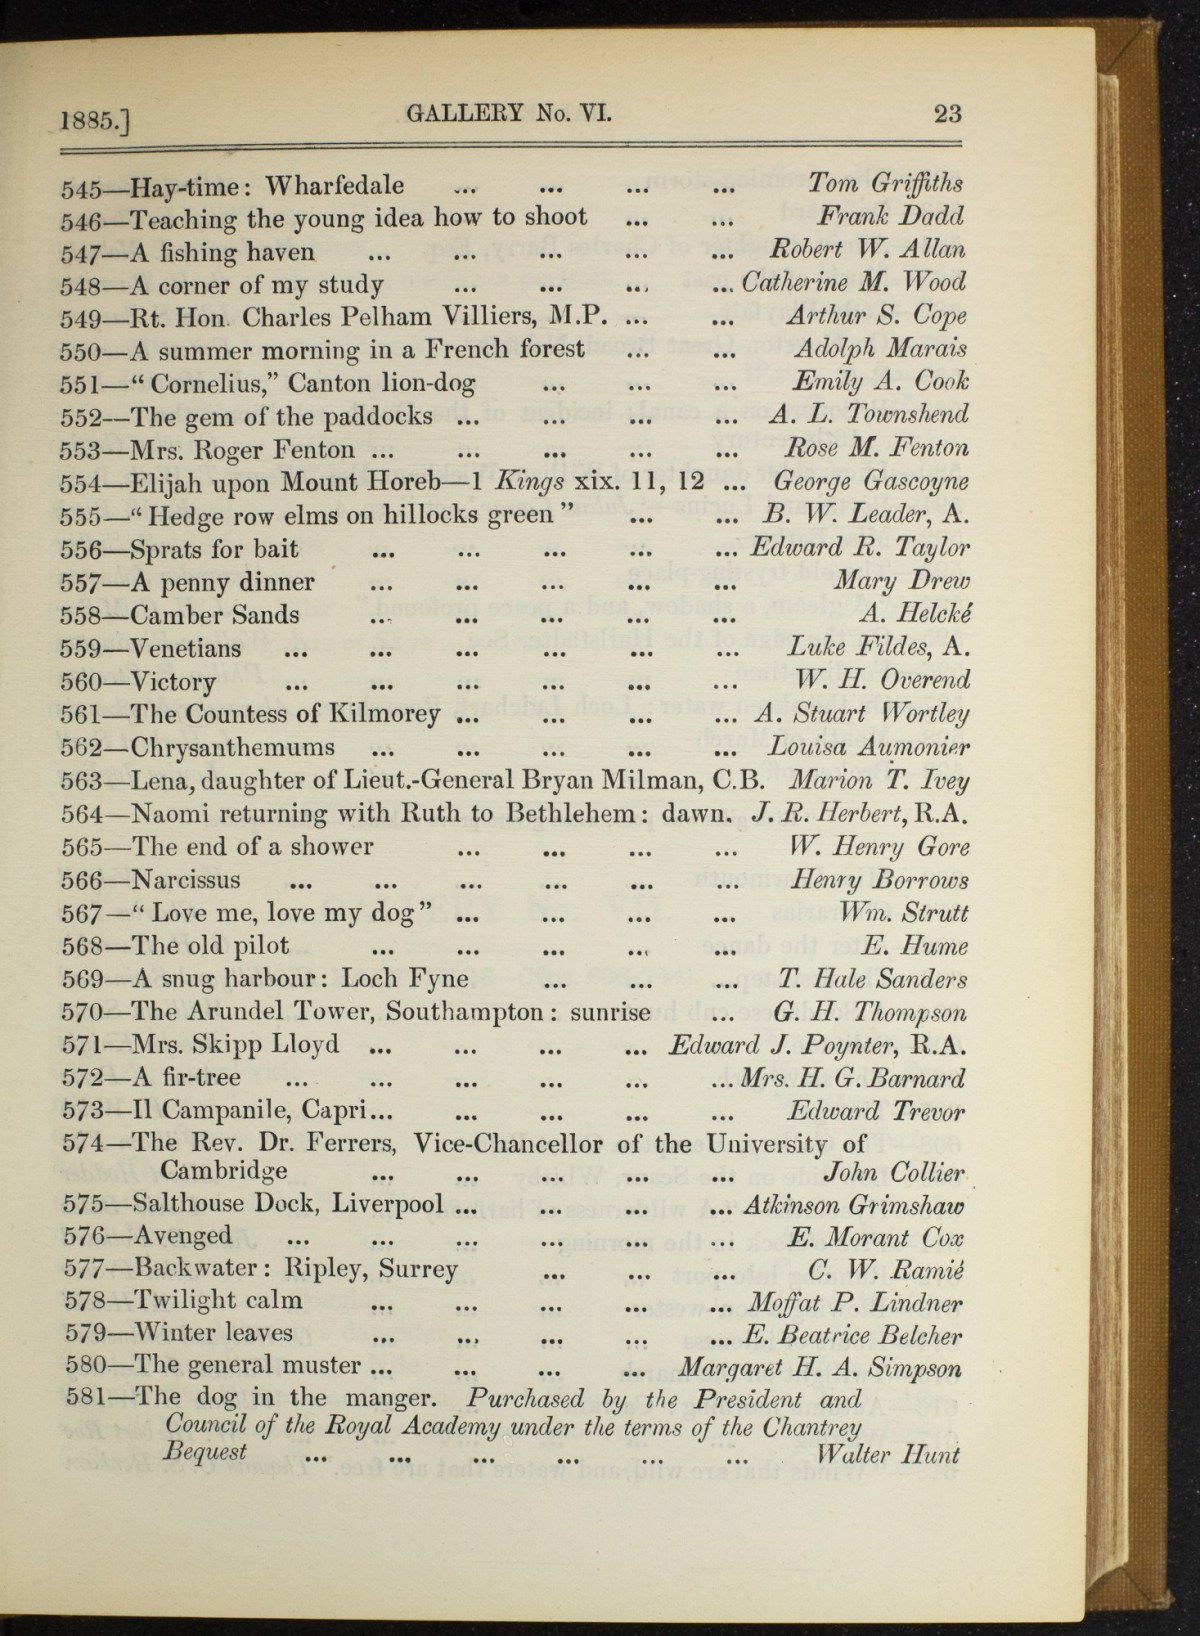 1885.] GALLERY No. VI. 23
545—Hay-time: Wharfedale ... ... ... ... Tom Griffiths
546—Teaching the young idea how to shoot ... ... Frank Dadd
547—A fishing haven ... ... ... ... ... Robert W. Allan
548—A corner of my study ... ... ... ... Catherine M. Wood
549—Rt. Hon. Charles Pelham Villiers, M.P. ... ... Arthur S. Cope
550—A summer morning in a French forest ... ... Adolph Marais
551—“Cornelius,” Canton lion-dog ... ... ... Emily A. Cook
552—The gem of the paddocks ... ... ... ... A. L. Townshend
553—Mrs. Roger Fenton ... ... ... ... ... Rose M. Fenton
554—Elijah upon Mount Horeb—1 Kings xix. 11, 12 ... George Gascoyne
555—“Hedge row elms on hillocks green” ... ... B. W. Leader, A.
556—Sprats for bait ... ... ... ... ... Edward R. Taylor
557—A penny dinner ... ... ... ... ... Mary Drew
558—Camber Sands ... ... ... ... ... A. Helcké
559—Venetians ... ... ... ... ... ... Luke Fildes, A.
560—Victory ... ... ... ... ... ... W. H. Overend
561—The Countess of Kilmorey ... ... ... ... A. Stuart Wortley
562—Chrysanthemums ... ... ... ... ... Louisa Aumonier
563—Lena, daughter of Lieut.-General Bryan Milman, C.B. Marion T. Ivey
564—Naomi returning with Ruth to Bethlehem: dawn. J. R. Herbert, R.A.
565—The end of a shower ... ... ... ... W. Henry Gore
566—Narcissus ... ... ... ... ... ... Henry Borrows
567—“Love me, love my dog” ... ... ... ... Wm. Strutt
568—The old pilot ... ... ... ... ... E. Hume
569—A snug harbour: Loch Fyne ... ... ... T. Hale Sanders
570—The Arundel Tower, Southampton: sunrise ... G. H. Thompson
571—Mrs. Skipp Lloyd ... ... ... ... Edward J. Poynter, R.A.
572—A fir-tree ... ... ... ... ... ... Mrs. H. G. Barnard
573—Il Campanile, Capri... ... ... ... ... Edward Trevor
574—The Rev. Dr. Ferrers, Vice-Chancellor of the University of
Cambridge ... ... ... ... ... John Collier
575—Salthouse Dock, Liverpool ... ... ... ... Atkinson Grimshaw
576—Avenged ... ... ... ... ... ... E. Morant Cox
577—Backwater: Ripley, Surrey ... ... ... C. W. Ramié
578—Twilight calm ... ... ... ... ... Moffat P. Lindner
579—Winter leaves ... ... ... ... ... E. Beatrice Belcher
580—The general muster ... ... ... ... Margaret H. A. Simpson
581—The dog in the manger. Purchased by the President and
Council of the Royal Academy under the terms of the Chantrey
Bequest ... ... ... ... ... ... Walter Hunt